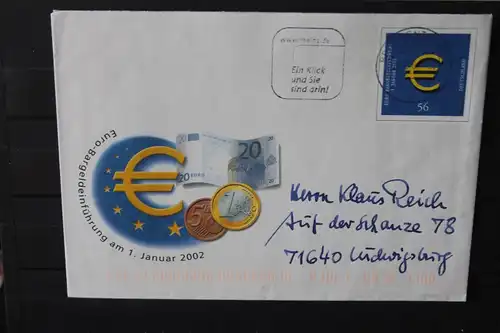 Ein Klick
und Sie
sind drin!
EURO-BARGELDEINFÜHRUNG
1. JANUAR 2002
DEUTSCHLAND
56
Euro-Bargeldeinführung am 1. Januar 2002
20
20 EURO
5
1 EURO
Herrn Klaus Reich
Auf der Schanze 78
71640 Ludwigsburg